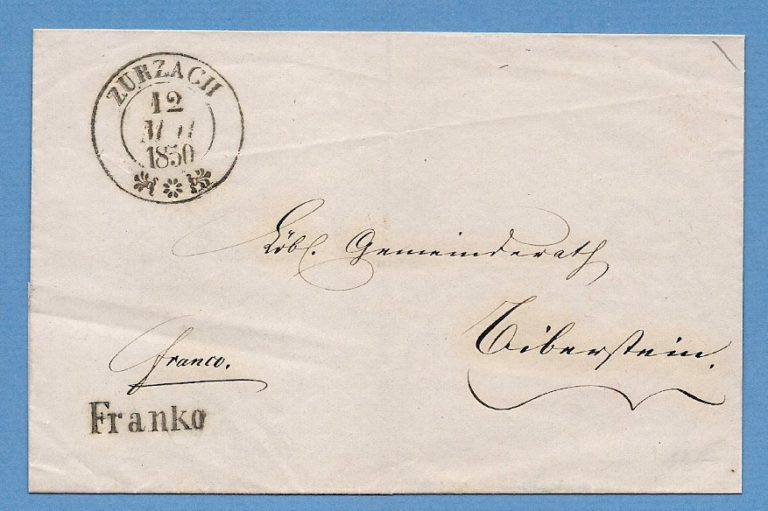 ZURZACH
12
1850
Löbl. Gemeinderath
Biberstein.
franco.
Franko